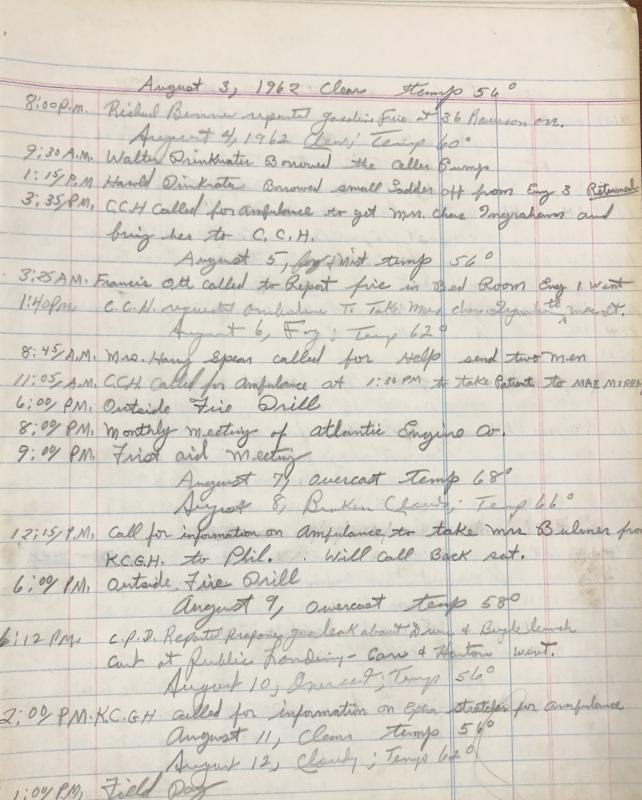 August 3, 1962 Clear temp 56°
8:00 P.m. Richard reported gasoline fire at 36 Rawson ave.
August 4, 1962 Clear; Temp 60°
9:30 A.M. Walter Drinkwater Borrowed the Celler Pump
1:15 P.M Harold Drinkwater Borrowed small Ladder off from Eng 3 Returned
3:35 P.M. CCH Called for ambulance to get Mrs. Chas Ingraham and
bring her to C.C.H.
August 5, fog & Mist temp 56°
3:25 A.M. Francis Ott called to Report fire in Bed Room Eng 1 went
1:40 pm C.C.H. requested ambulance To Take Mrs chas. Ingraham to
August 6, Fog; Temp 62°
8:45 A.M. Mrs. Harry Spear called for Help send two men
11:05 A.M. CCH Called for Ambulance at 1:30 PM to take Patient to
6:00 P.M. Outside Fire Drill
8:00 P.M. Monthly meeting of Atlantic Engine Co.
9:00 P.M. First aid Meeting
August 7, overcast temp 68°
August 8, Broken Clouds; Temp 66°
12:15 P.M. Call for information on Ambulance, to take Mrs Bulmer from
K.C.G.H. to Phil. Will call Back sat.
6:00 P.M. Outside Fire Drill
August 9, overcast temp 58°
6:12 P.M. C.P.D. Reported propane gas leak about Drum & Bugle lunch
Cart at Public Landing - Carr & Horton went.
August 10, Overcast; Temp 56°
2:00 P.M. K.C.G.H called for information on extra stretcher for ambulance
August 11, Clear temp 56°
August 12, Cloudy; Temp 62°
1:00 P.M. Field Day